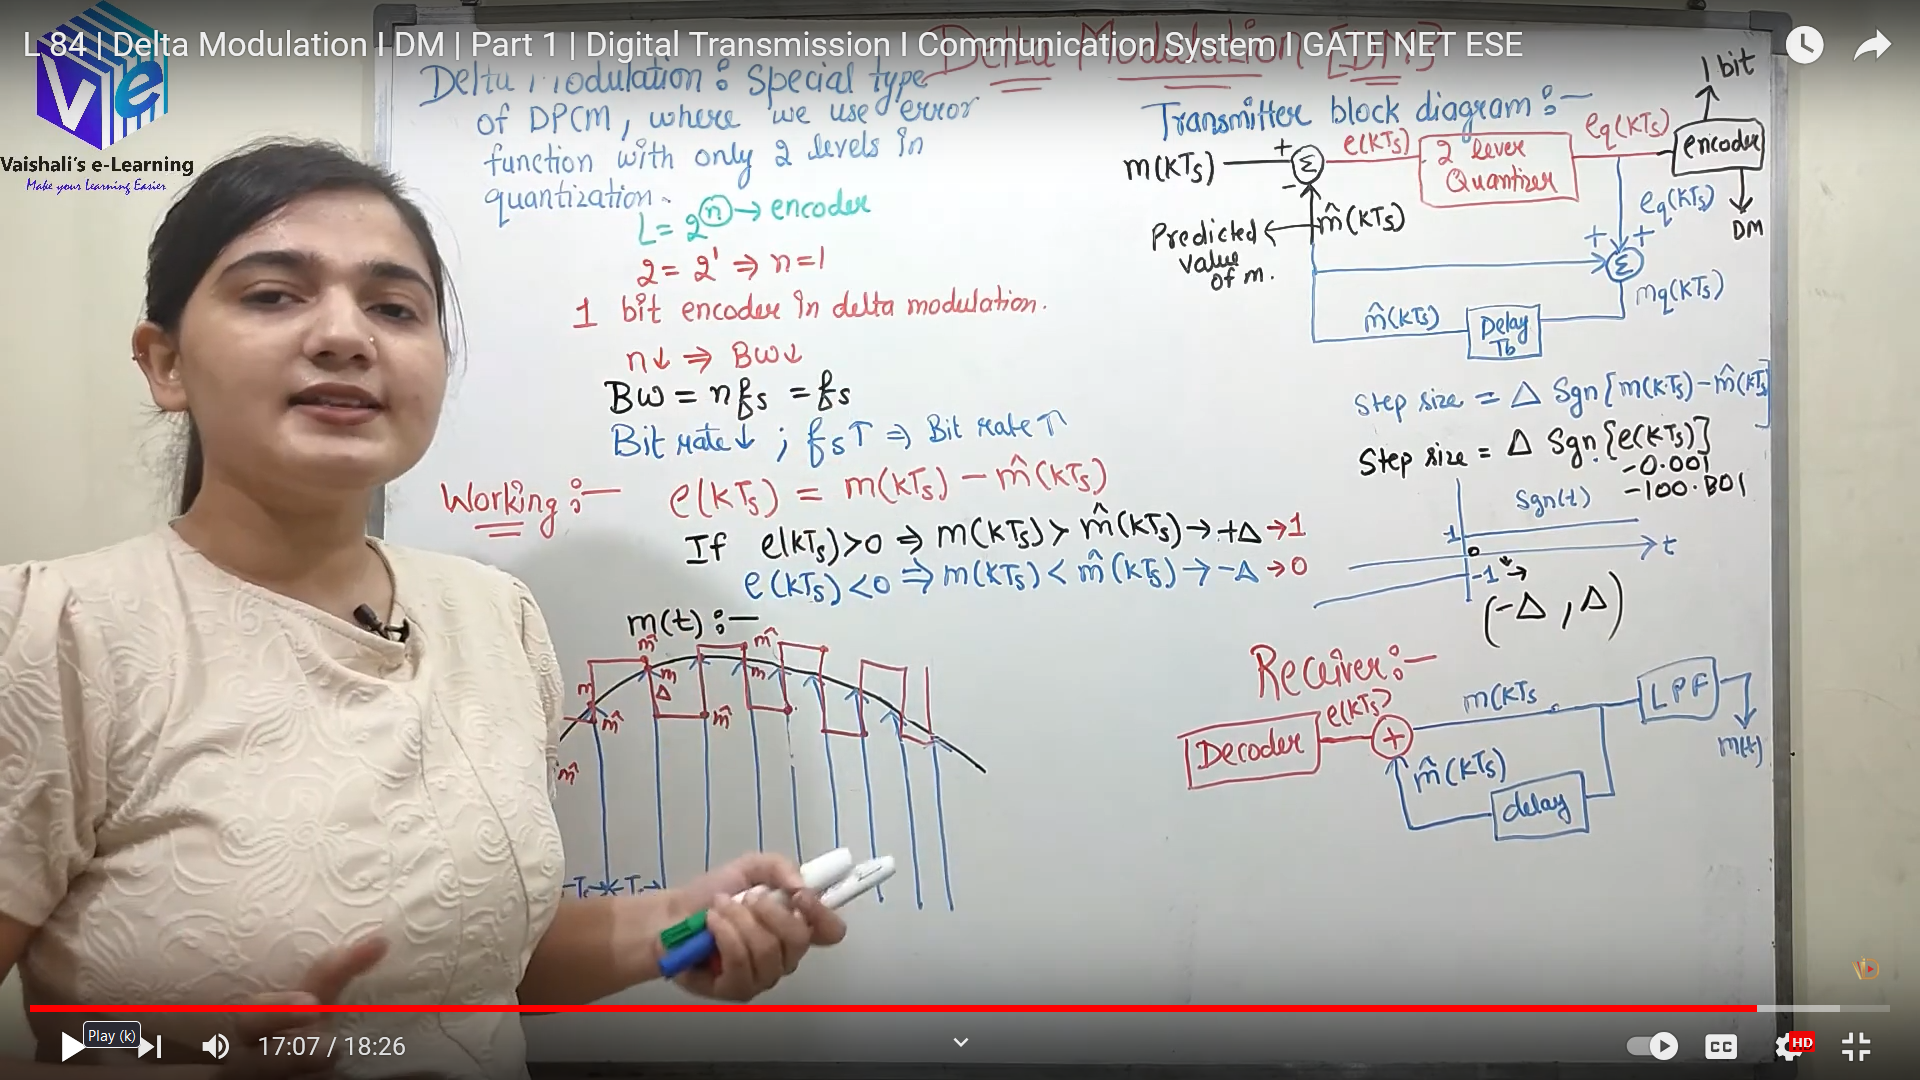 L 84 | Delta Modulation I DM | Part 1 | Digital Transmission I Communication System | GATE NET ESE
Ve
Vaishali's e-Learning
Make your Learning Easier
Delta Modulation [DM]
Delta Modulation : Special type
of DPCM, where we use error
function with only 2 levels in
quantization.
L = 2^n → encoder
2 = 2^1 ⇒ n=1
1 bit encoder in delta modulation.
n↓ ⇒ BW↓
BW = nfs = fs
Bit rate↓ ; fs↑ ⇒ Bit rate ↑
Working :-
e(kTs) = m(kTs) - m̂(kTs)
If e(kTs)>0 ⇒ m(kTs) > m̂(kTs) → +Δ → 1
e(kTs) <0 ⇒ m(kTs) < m̂(kTs) → -Δ → 0
m(t) :-
m̂
m̂
m
m
m
Δ
m̂
m̂
m̂
Ts
Transmitter block diagram :-
1 bit
m(kTs)
+
Σ
-
e(kTs)
2 level
Quantizer
eq(kTs)
encoder
DM
m̂(kTs)
Predicted
value
of m.
eq(kTs)
+
+
Σ
mq(kTs)
m̂(kTs)
Delay
Tb
Step size = Δ Sgn [m(kTs) - m̂(kTs)]
Step size = Δ Sgn [e(kTs)]
-0.001
-100.
Sgn(t)
1
0
t
-1
(-Δ , Δ)
Receiver :-
Decoder
e(kTs)
+
m(kTs
LPF
m(t)
m̂(kTs)
delay
Play (k)
17:07 / 18:26
CC
HD